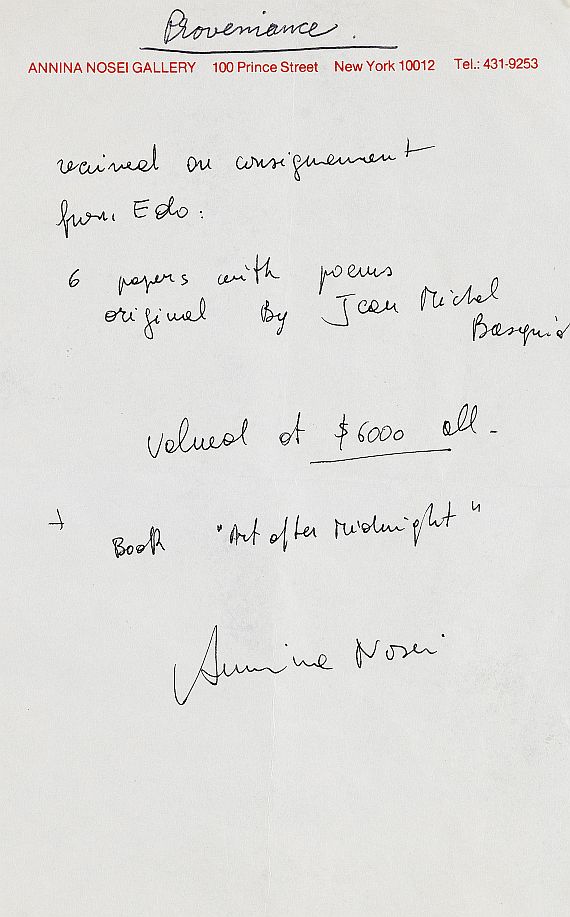 Proveniance.
ANNINA NOSEI GALLERY 100 Prince Street New York 10012 Tel.: 431-9253
received on consignement
from Edo:
6 papers with poems
original By Jean Michel
Basquia
valued at $6000 all -
+ Book "Art after Midnight"
Annina Nosei